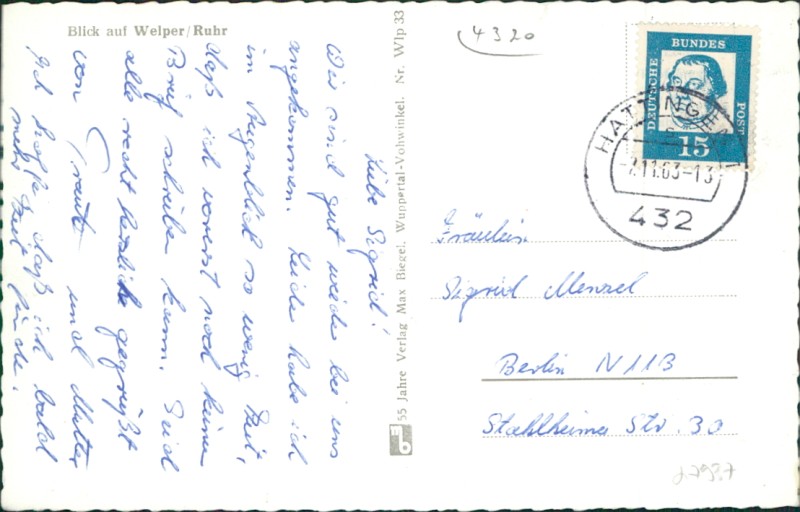 Blick auf Welper/Ruhr
4320
Liebe Sigrid!
Wir sind gut wieder bei uns
angekommen. Leider habe ich
im Augenblick so wenig Zeit,
daß ich vorerst noch keinen
Brief schreiben kann. Seid
alle recht herzlich gegrüßt
von Traute und Mutter
Ich hoffe daß ich bald
mehr Zeit finde.
55 Jahre Verlag Max Biegel, Wuppertal-Vohwinkel. Nr. Wlp 33
DEUTSCHE
BUNDES
POST
15
HATTINGEN
11.63-13
432
Fräulein
Sigrid Menzel
Berlin N 113
Stahlheimer Str. 30